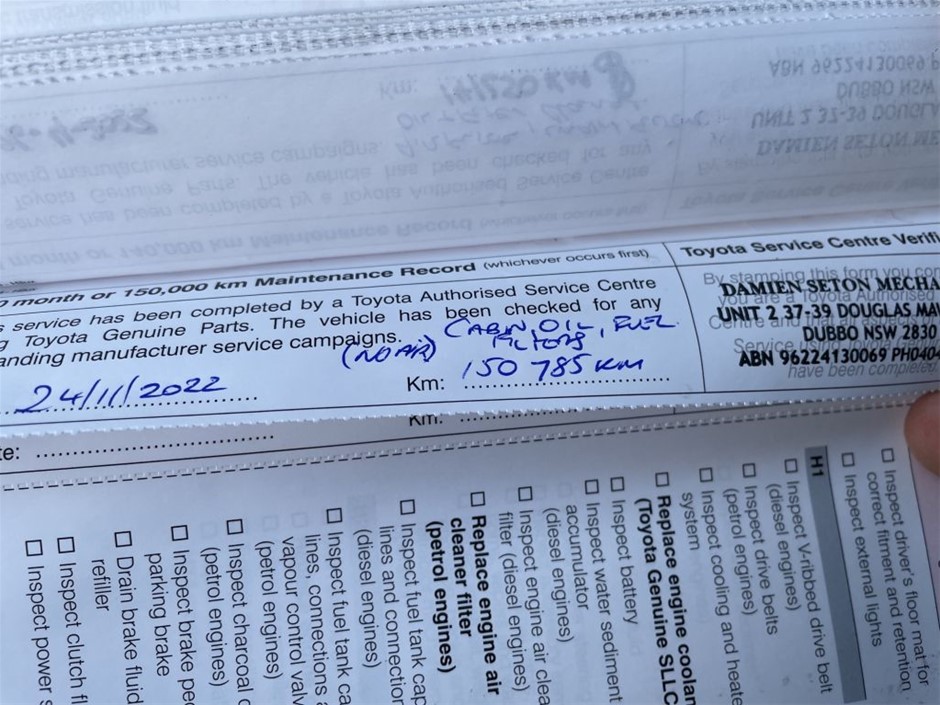 month or 150,000 km Maintenance Record (whichever occurs first)
service has been completed by a Toyota Authorised Service Centre
Toyota Genuine Parts. The vehicle has been checked for any
anding manufacturer service campaigns.
(NO AIR) CABIN, OIL, FUEL
FILTERS
24/11/2022
Km: 150 785 KM
Toyota Service Centre Verifi
By stamping this form you con
you are a Toyota Authorised
DAMIEN SETON MECHA
UNIT 2 37-39 DOUGLAS MAW
DUBBO NSW 2830
ABN 96224130069 PH0404
have been completed
te:
Km:
□ Inspect driver's floor mat for
correct fitment and retention
□ Inspect external lights
H1
□ Inspect V-ribbed drive belt
(diesel engines)
□ Inspect drive belts
(petrol engines)
□ Inspect cooling and heate
system
□ Replace engine coolan
(Toyota Genuine SLLC
□ Inspect battery
□ Inspect water sediment
accumulator
(diesel engines)
□ Inspect engine air clea
filter (diesel engines)
□ Replace engine air
cleaner filter
(petrol engines)
□ Inspect fuel tank cap
lines and connection
(diesel engines)
□ Inspect fuel tank ca
lines, connections a
vapour control valv
(petrol engines)
□ Inspect charcoal c
(petrol engines)
□ Inspect brake pe
parking brake
□ Drain brake fluid
refiller
□ Inspect clutch fl
□ Inspect power s